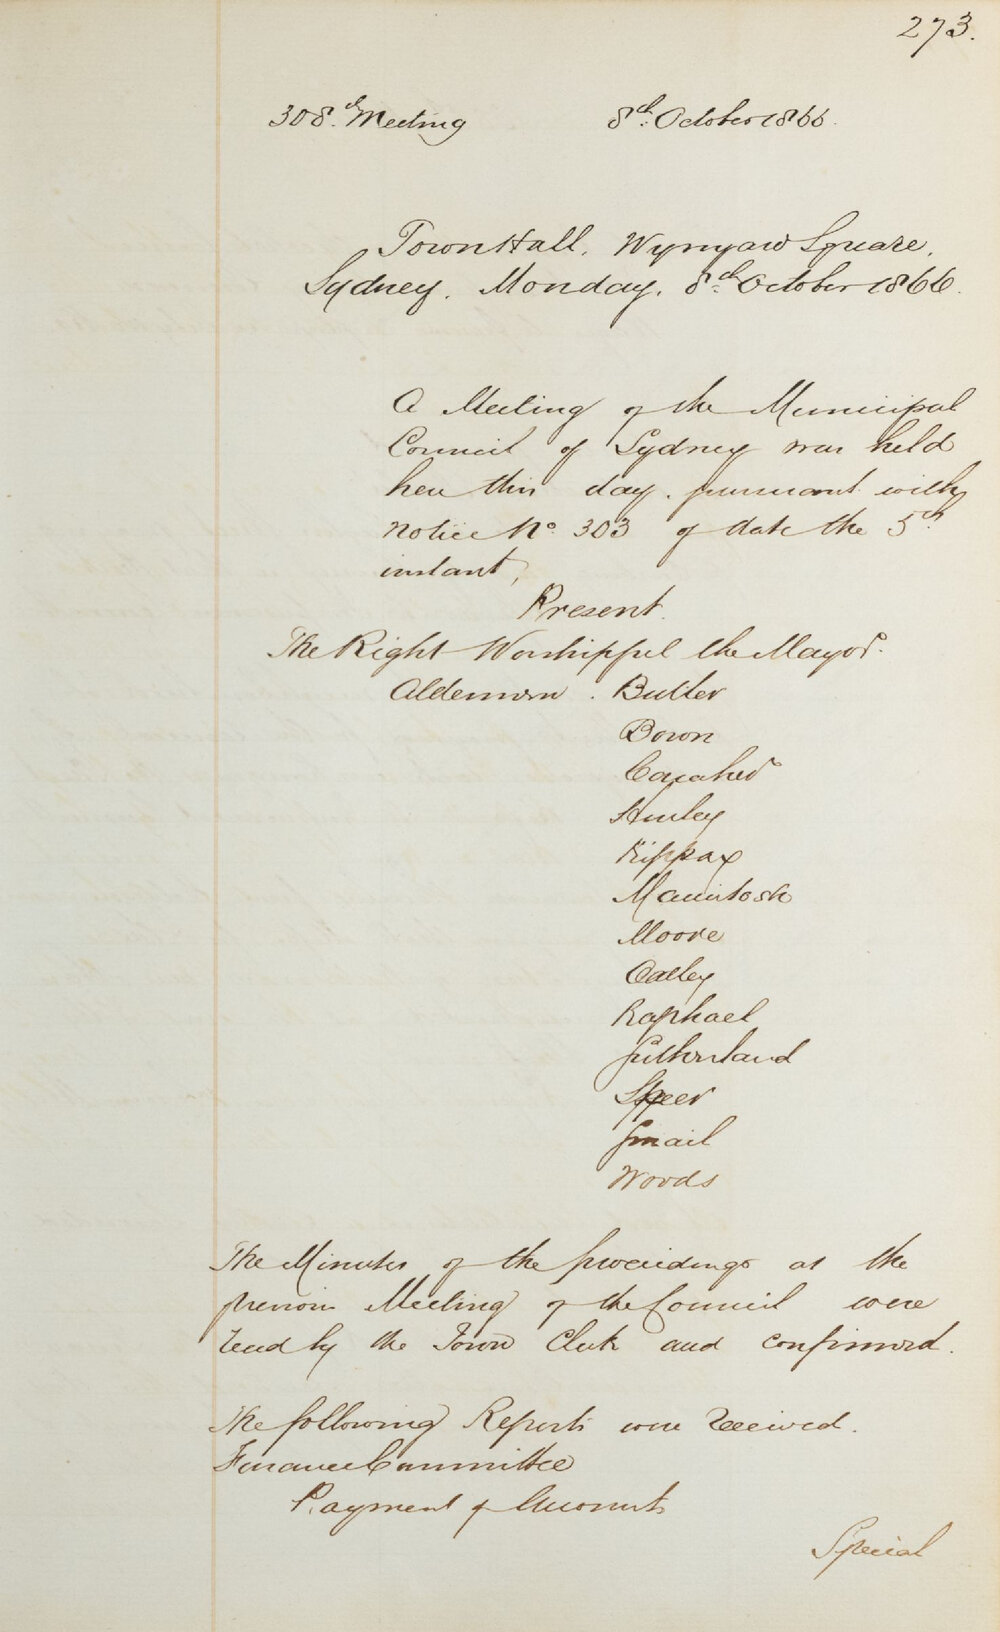 273.
308.th Meeting 8th October 1866.
Town Hall, Wynyard Square,
Sydney, Monday, 8th October 1866.
A Meeting of the Municipal
Council of Sydney was held
here this day, pursuant with
notice No. 303 of date the 5th
instant,
Present.
The Right Worshipful the Mayor.
Aldermen. Butler
Bown
Caraher
Hurley
Kippax
Macintosh
Moore
Oatley
Raphael
Sutherland
Speer
Smail
Woods
The Minutes of the proceedings at the
previous Meeting of the Council were
read by the Town Clerk and confirmed.
The following Reports were received.
Finance Committee
Payment of Accounts
Special